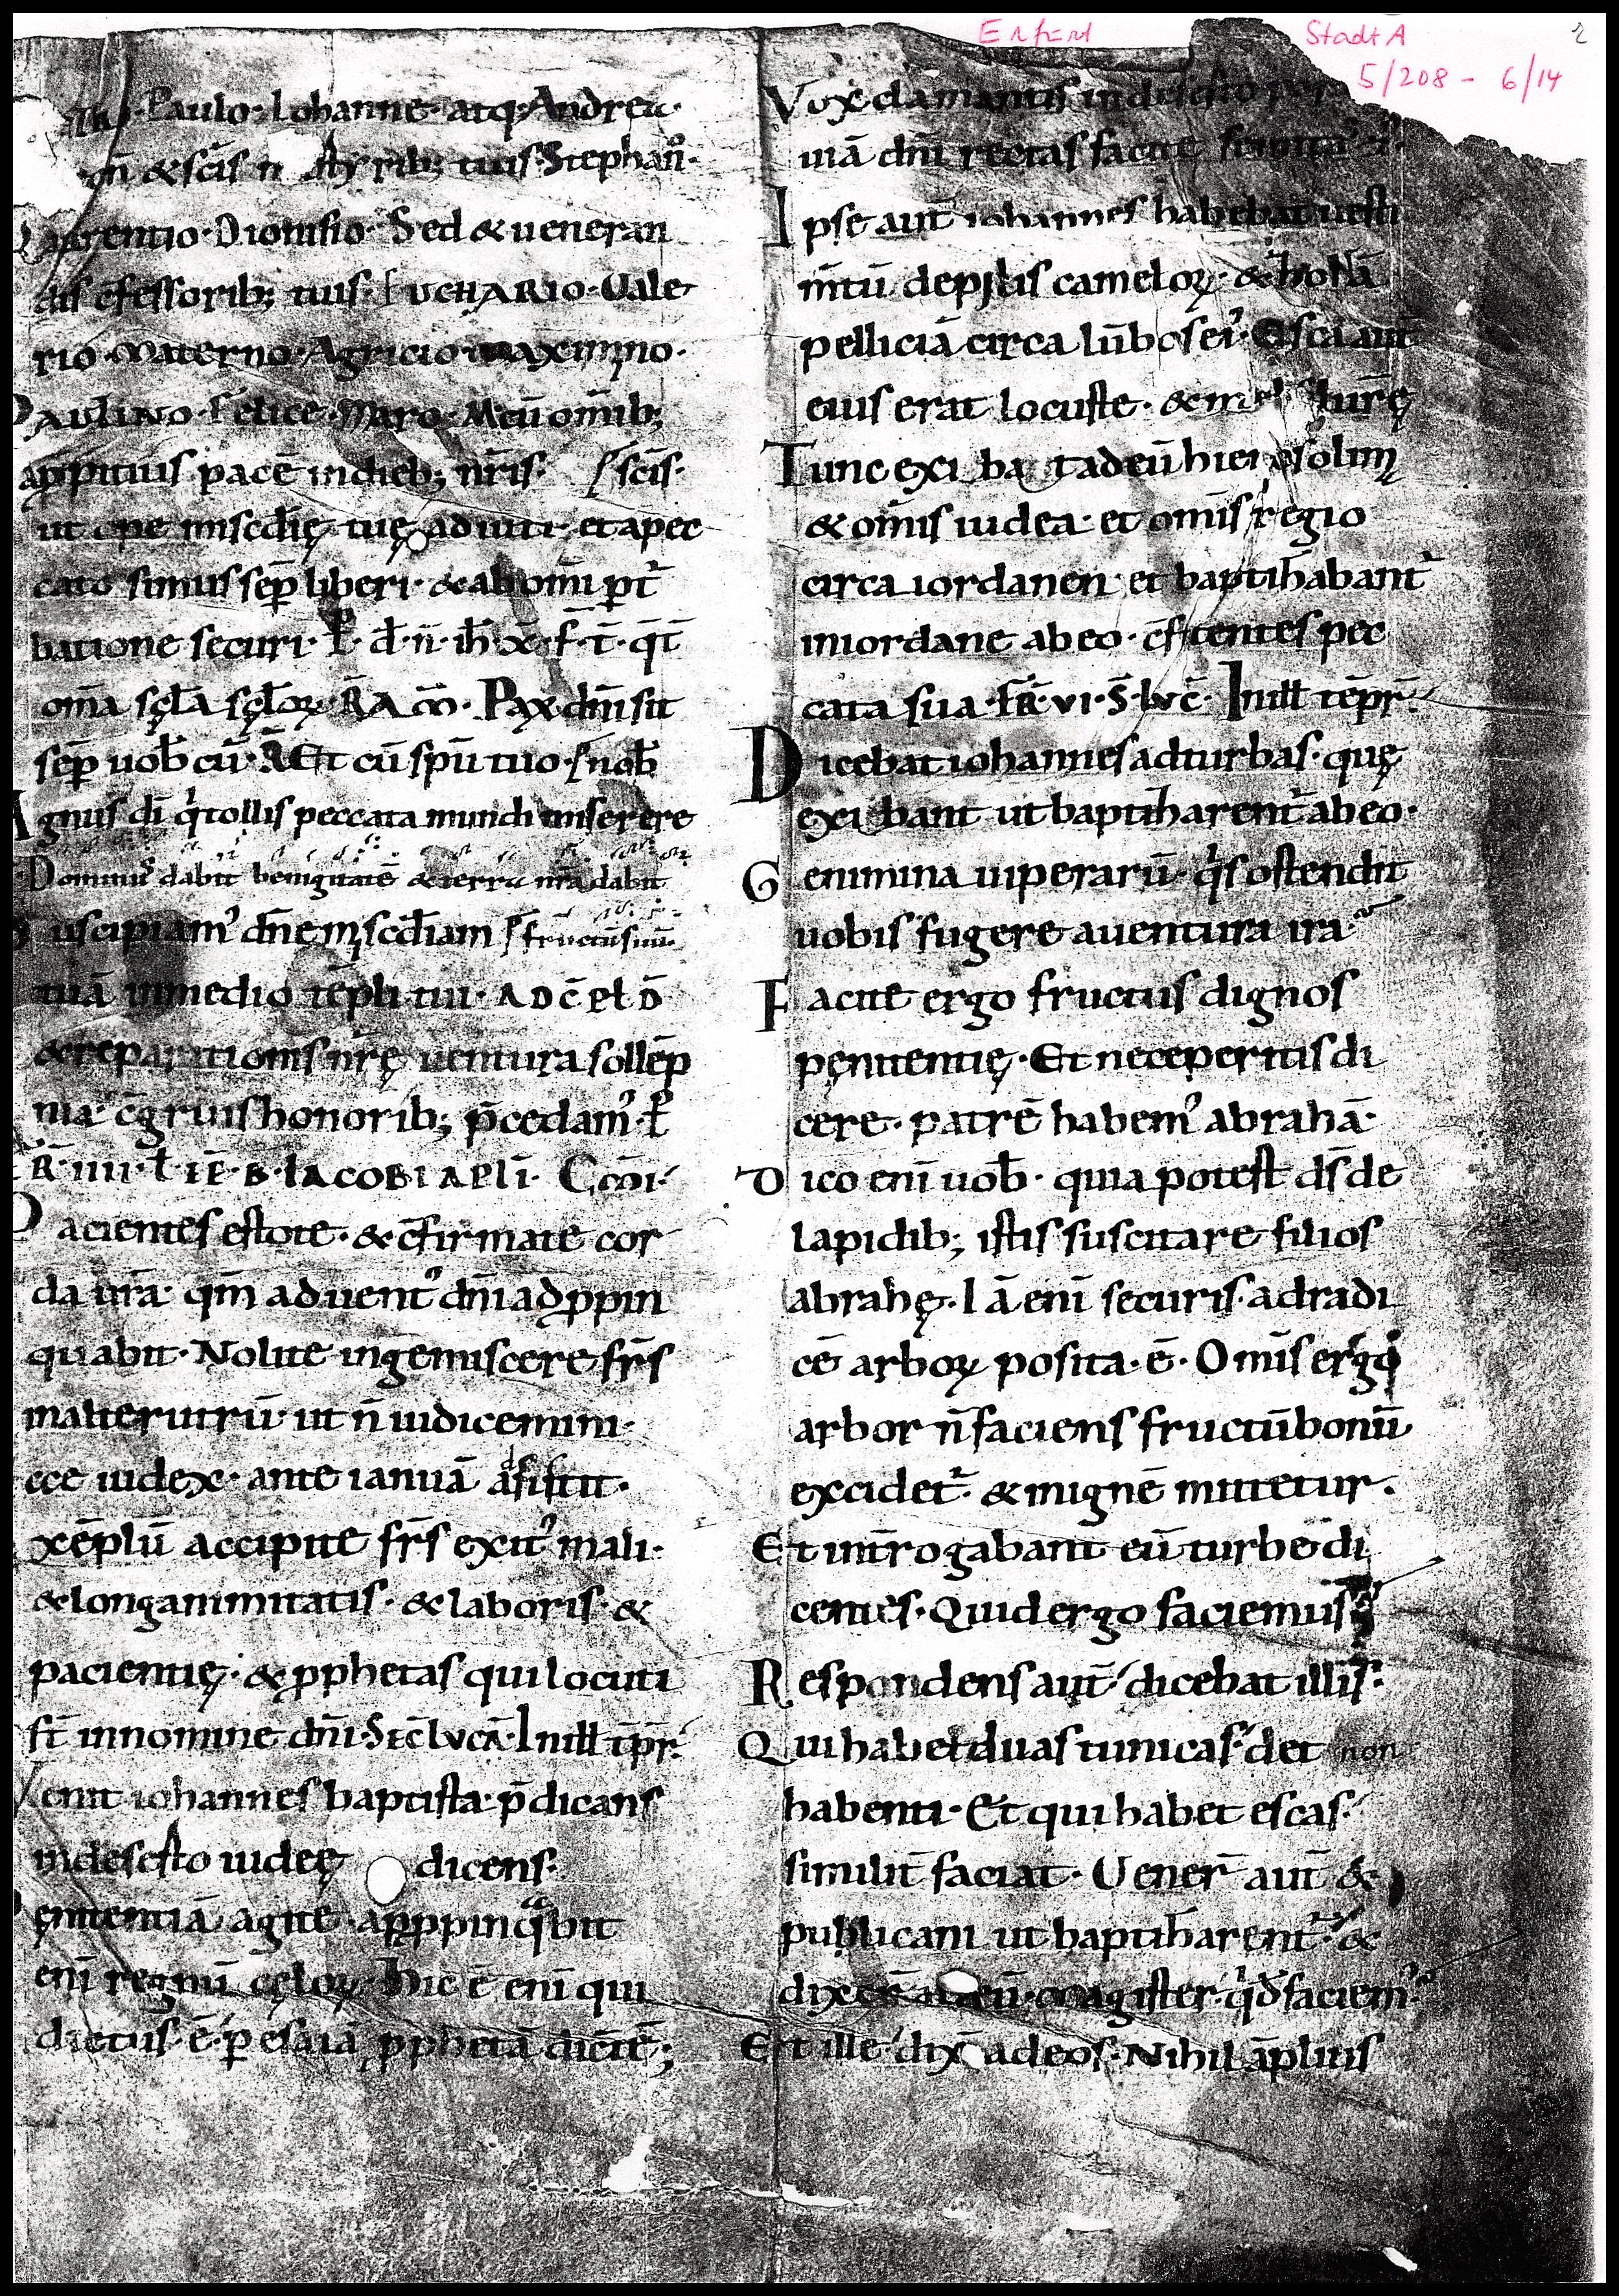 Erfurt
Stadt A
5/208 - 6/14
2
Paulo · Iohanne · atq; Andrea ·
& sc̄is rib; tuis · Stephan̊ ·
aurentio · Dionisio · Sed & ueneran
dis c̄fessorib; tuis · EUCHARIO · Uale
rio · Materno · Agricio maximino ·
PAULINO · Felice · Maro · M cū om̄ib;
appituis pacē in dieb; nr̄is · sc̄is ·
ut ope misc̄dię tuę adiuti · et a pec
cato simus sēp liberi · & ab om̄i pt᷑
batione securi · P̄ · d̄ · n̄ · ih̄ · x̄ · f · t̄ · q̄t̄
om̄a sc̨la sc̨loꝝ · R̄ A m̄ · Pax dn̄i sit
sēp uob̄ cū · R̄ Et cū sp̄u tuo · nob̄
Agnus dī q̇ tollis peccata mundi miserere
Dominus dabit benignitatē & terra nr̄a dabit
Suscipiam᾽ dn̄e misc̄diam fructum suū ·
tuā in medio tēpli tui · AD C̄ ET D̄
& reparationis nr̄ę uentura sollēp
nia · c̄gruis honorib; p̄cedam᾽ · P̄
FR̄ · IIII · L̄ · IĒ · B · IACOBI APLI · C̄mi ·
Pacientes estote · & c̄firmate cor
da ur̄a · qm̄ aduent᾽ dn̄i adꝓpin
quabit · Nolite ingemiscere fr̄s
in alterutrū · ut n̄ iudicemini ·
cce iudex · ante ianuā adsistit ·
xēplū accipite fr̄s exit᾽ mali ·
& longanimitatis · & laboris · &
pacientię · & ꝓphetas qui locuti
st̄ in nomine dn̄i · S̄EC̄ LVCĀ · In ill̄ tp̄r ·
Venit iohannes baptista · p̄dicans
in deserto iudeę dicens ·
Penitentiā agite · apꝓpinq̊bit
enī regnū cęloꝝ · Hic ē enī qui
dictus · ē · ꝑ esaiā ꝓphetā dicētē ;
Vox clamantis in deserto
uiā dn̄i rectas facite semitas
Ipse aut̄ iohannes habebat uesti
m̄tū de pilis cameloꝝ · & zonā
pelliciā circa lūbos ei᾽ · Esca aut̄
eius erat locuste · & mel siluestrę
Tunc exibat ad eū hierosolim
& om̄is iudea · et om̄is regio
circa iordanen · et baptizabant᷑
in iordane ab eo · c̄fitentes pec
cata sua · FR̄ · VI · S̄ · LVC̄ · In ill̄ tēpr̄ ·
Dicebat iohannes ad turbas · quę
exibant ut baptizarent᷑ ab eo ·
Genimina uiperarū · q̇s ostendit
uobis fugere a uentura ira ·
Facite ergo fructus dignos
pęnitentię · Et ne ceperitis di
cere · patrē habem᾽ abrahā ·
Dico enī uob̄ · quia potest ds̄ de
lapidib; istis suscitare filios
abrahę · Iā enī securis · ad radi
cē arboꝝ posita · ē · Om̄is ergo
arbor n̄ faciens fructū bonū
excidet᷑ · & in ignē mittetur ·
Et int̄rogabant eū turbe di
centes · Quid ergo faciemus
Respondens aut̄ dicebat illis ·
Qui habet duas tunicas · det non
habenti · Et qui habet escas ·
similit̄ faciat · Uener̄ aut̄ &
publicani ut baptizarent᷑ · &
dixer̄ ad eū · magister · q̇d faciem᾽
Et ille dix̄ ad eos · Nihil āplius